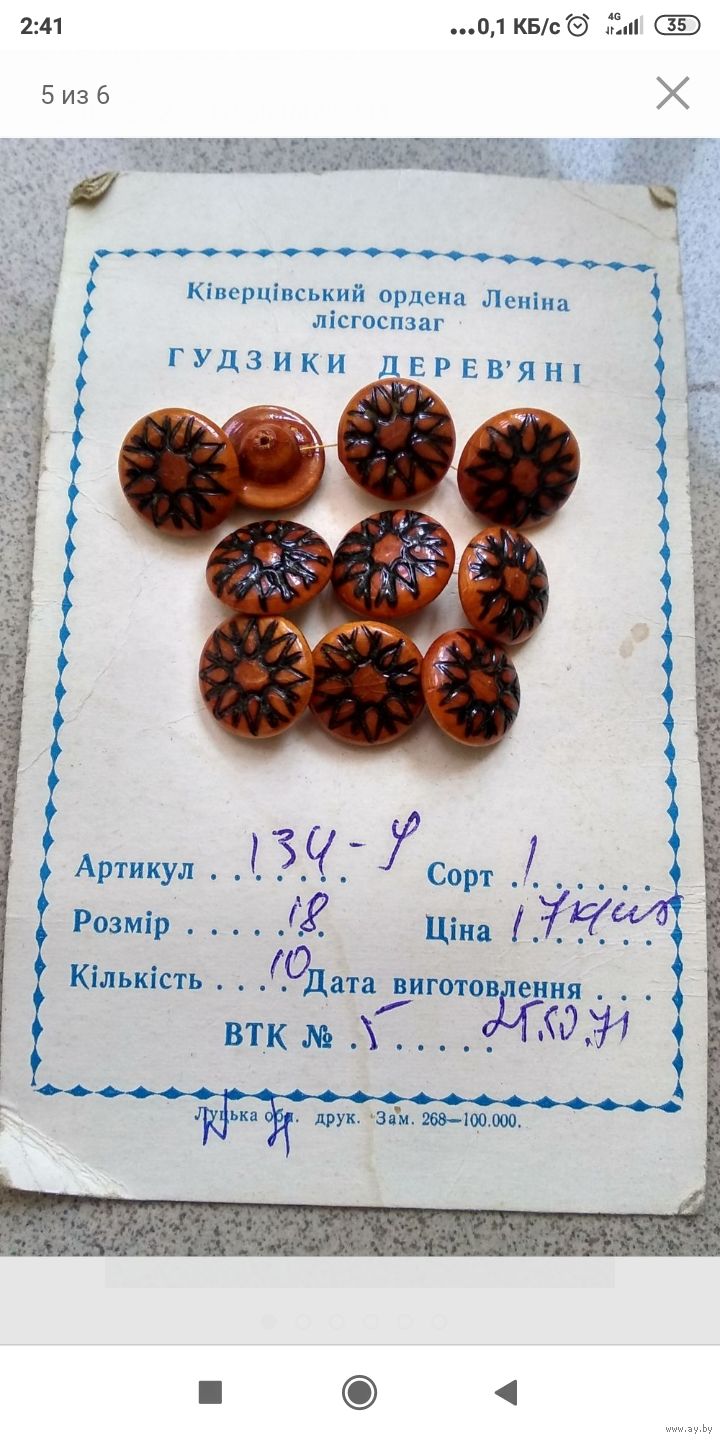 2:41 ...0,1 КБ/с 4G 35
5 из 6
Ківерцівський ордена Леніна
лісгоспзаг
ГУДЗИКИ ДЕРЕВ'ЯНІ
Артикул . . . . . . . Сорт 1 . . . . . .
Розмір . . . . . 18 . Ціна 17 . . . . . .
Кількість . . . . 10 Дата виготовлення . . .
ВТК № . 5 . . . . .
Луцька обл. друк. Зам. 268—100.000.
www.ay.by